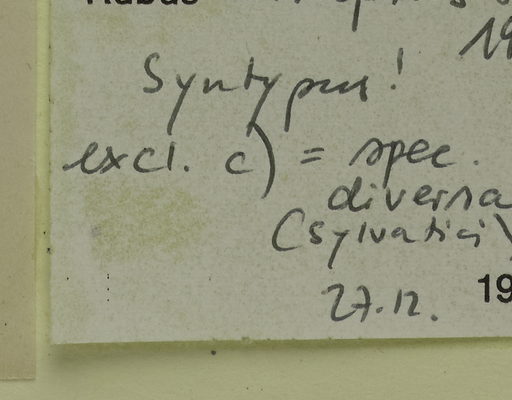 Rubus
19
Syntypus!
excl. c) = spec.
diversa
(sylvatici)
27.12. 19